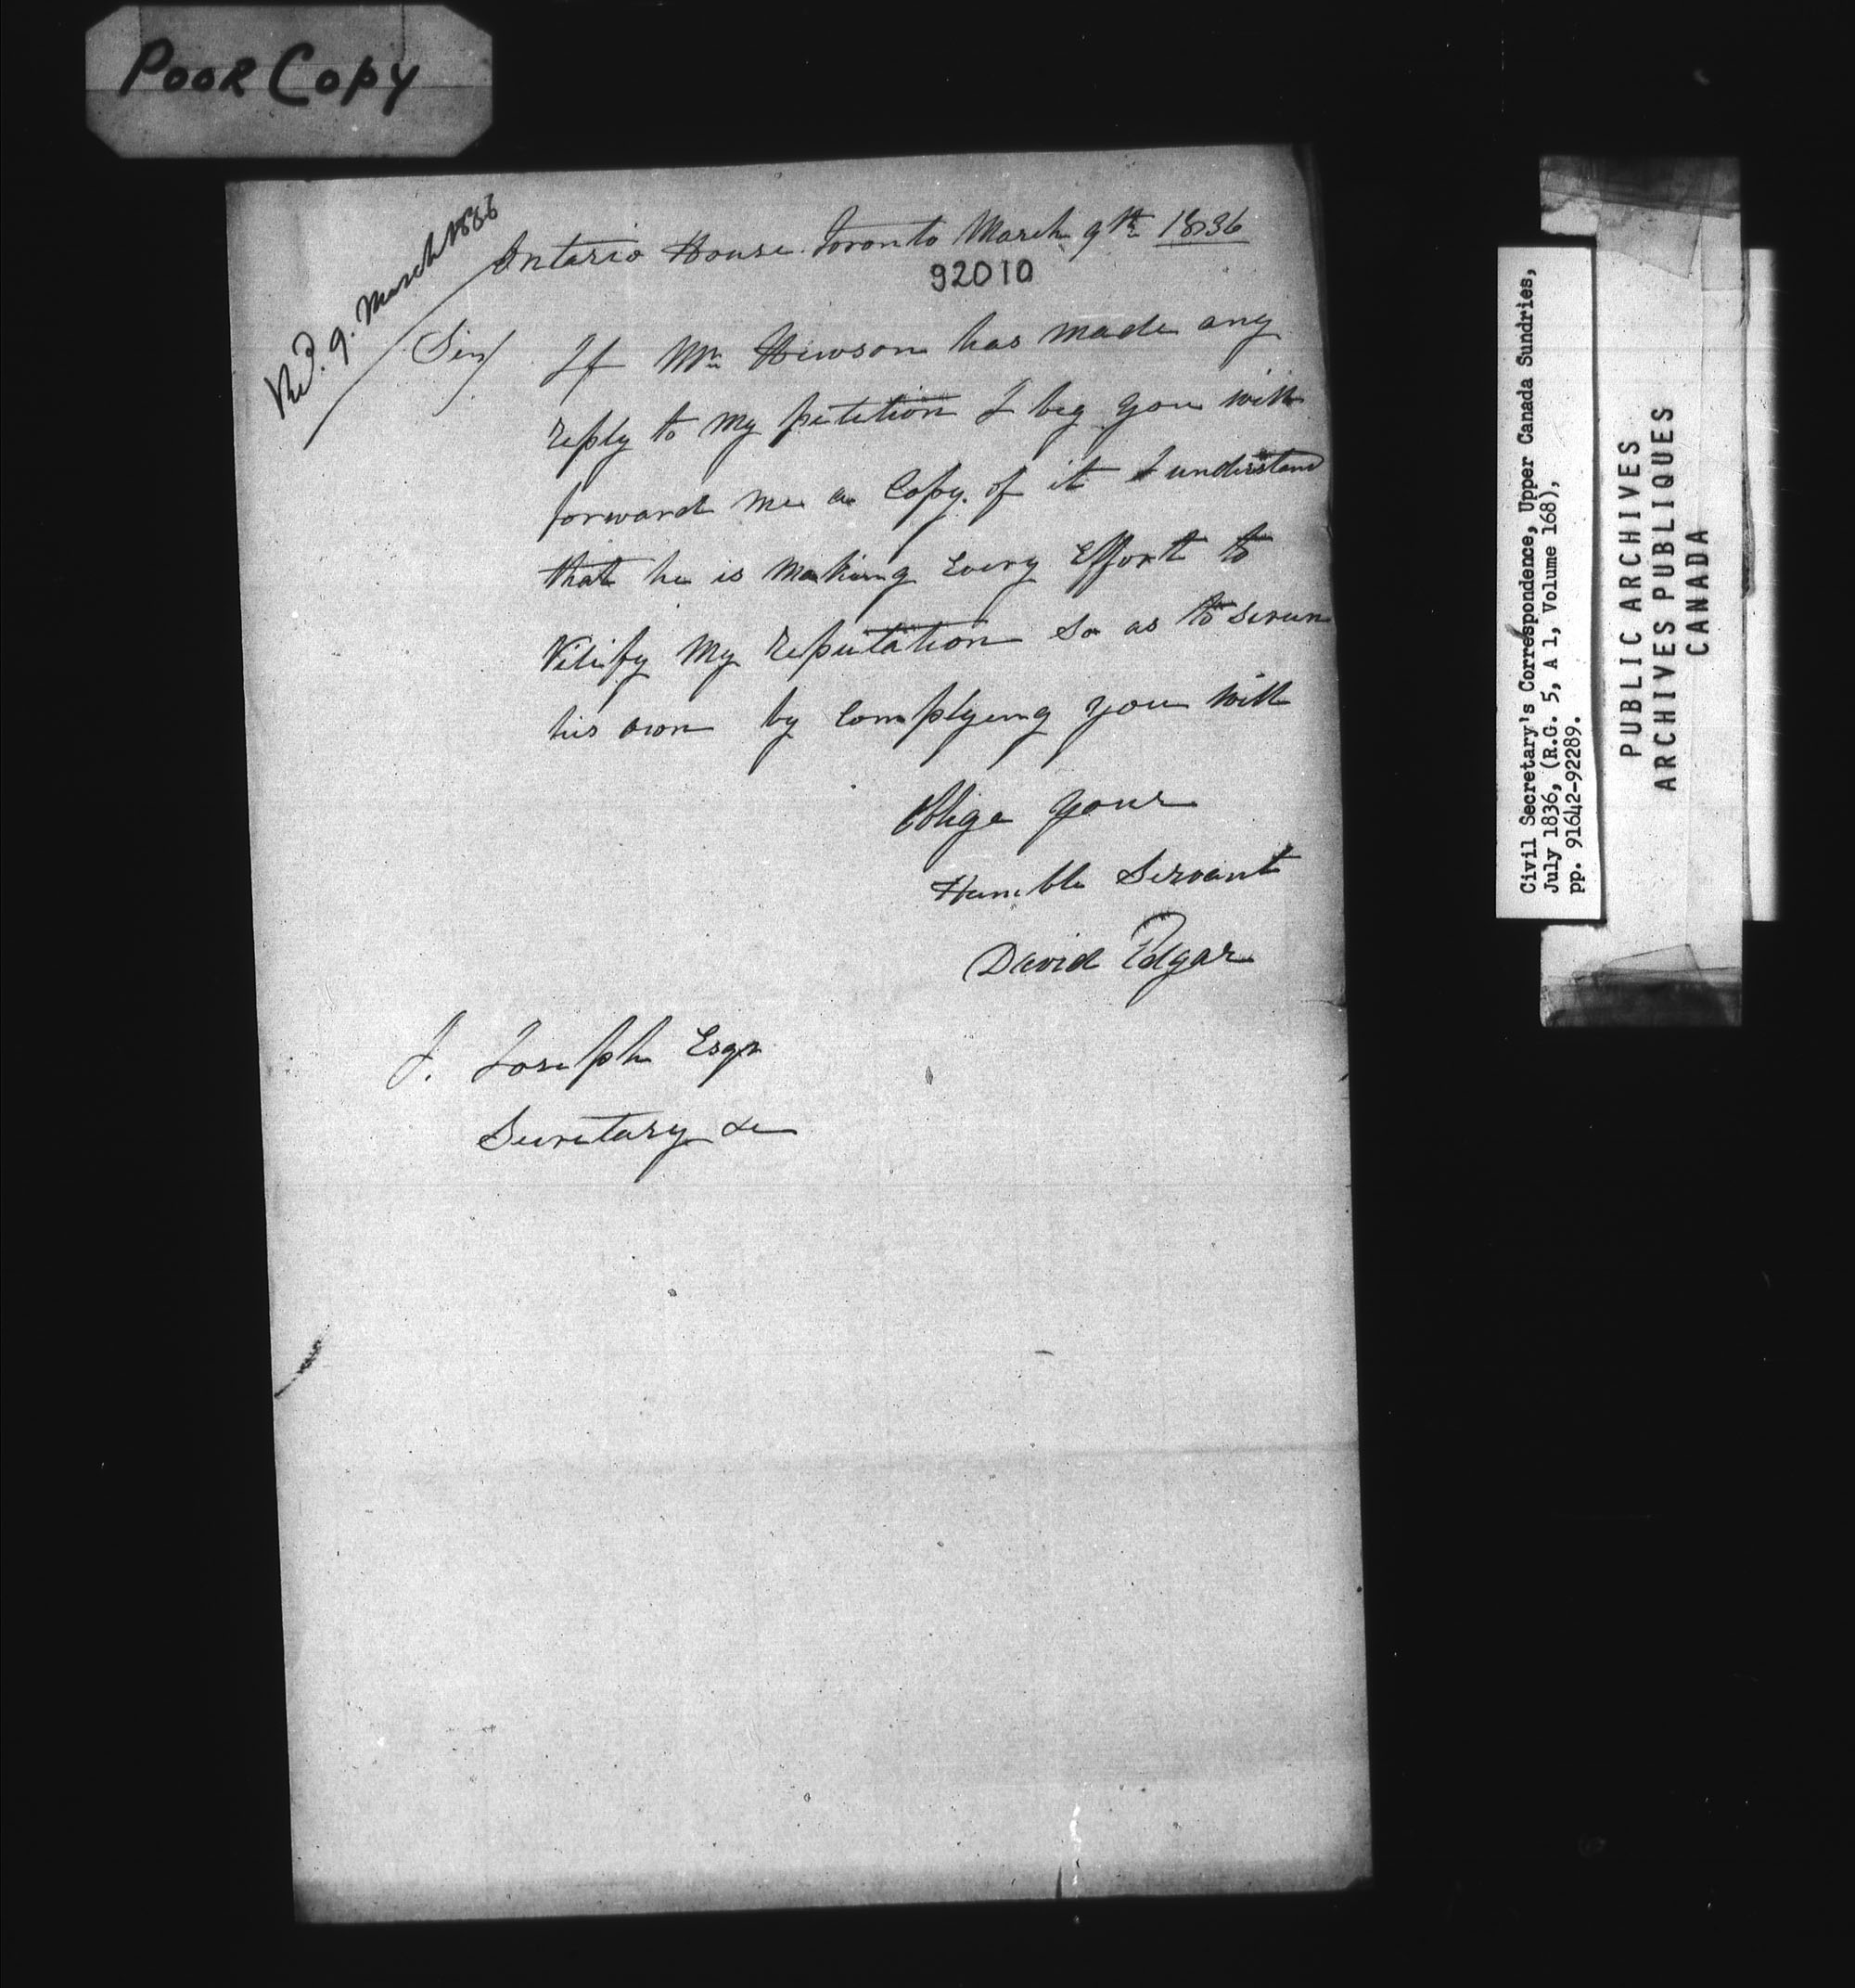 POOR COPY
Recd. 9. March 1836
Ontario House Toronto March 9th 1836
92010
Sir/ If Mr Hewson has made any
reply to my petition I beg you will
forward me a Copy of it I understand
that he is making Every Effort to
Vilify My reputation so as to screen
his own by Complying you will
Oblige your
Humble Servant
David Edgar
J. Joseph Esqr
Secretary &c
Civil Secretary's Correspondence, Upper Canada Sundries,
July 1836, (R.G. 5, A 1, Volume 168),
pp. 91642-92289.
PUBLIC ARCHIVES
ARCHIVES PUBLIQUES
CANADA